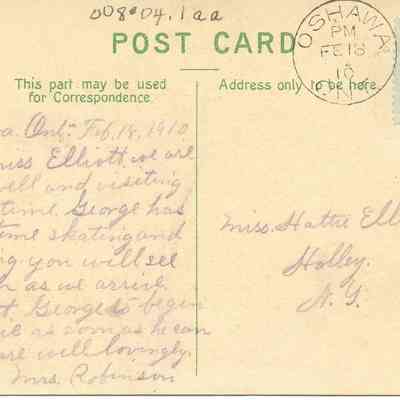 008.04.1aa
POST CARD
OSHAWA
PM
FE 18
10
ONT.
This part may be used
for Correspondence.
Address only to be here.
a. Ont- Feb. 18, 1910
miss Elliott we are
well and visiting
time. George has
time skating and
g you will see
n as we arrive
t. George to begin
as soon as he can
are well lovingly.
Mrs. Robinson
Miss. Hattie Ell
Holley.
N. Y.